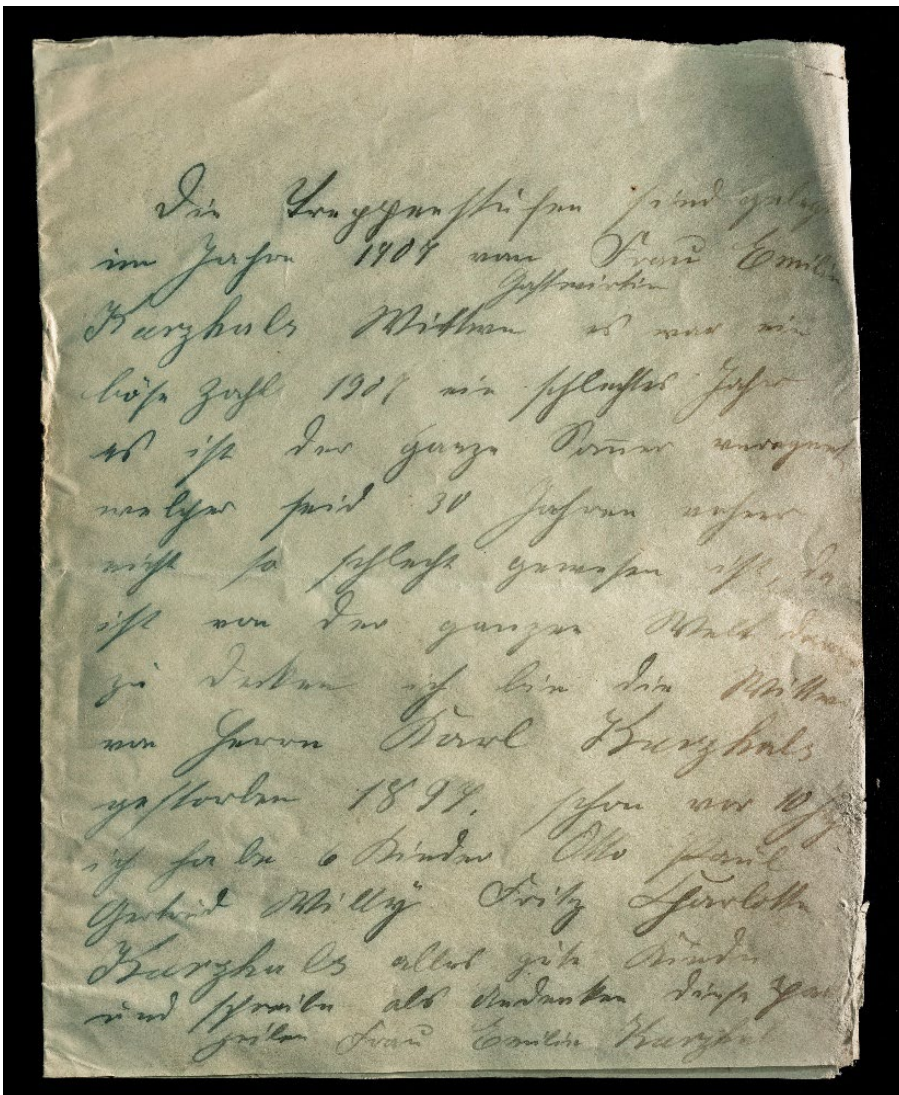 Die Treppenstufen sind geleg
im Jahre 1907 von Frau Emilie
Gastwirtin
Kurzhals Wittwe es war ein
böse Zahl 1907 ein schlechtes Jahr
es ist der ganze Som̅er veregnet
welcher seid 30 Jahren
nicht so schlecht gewesen ist, da
ist von der ganzen Welt
zu denken ich bin die Wittwe
von Herrn Karl Kurzhals
gestorben 1897. schon vor 10
ich habe 6 Kinder Otto Paul
Gertrud Willy Fritz Charlotte
Kurzhals alles gute Kinder
und schreibe als Andenken diese
Zeilen Frau Emilie Kurzhals